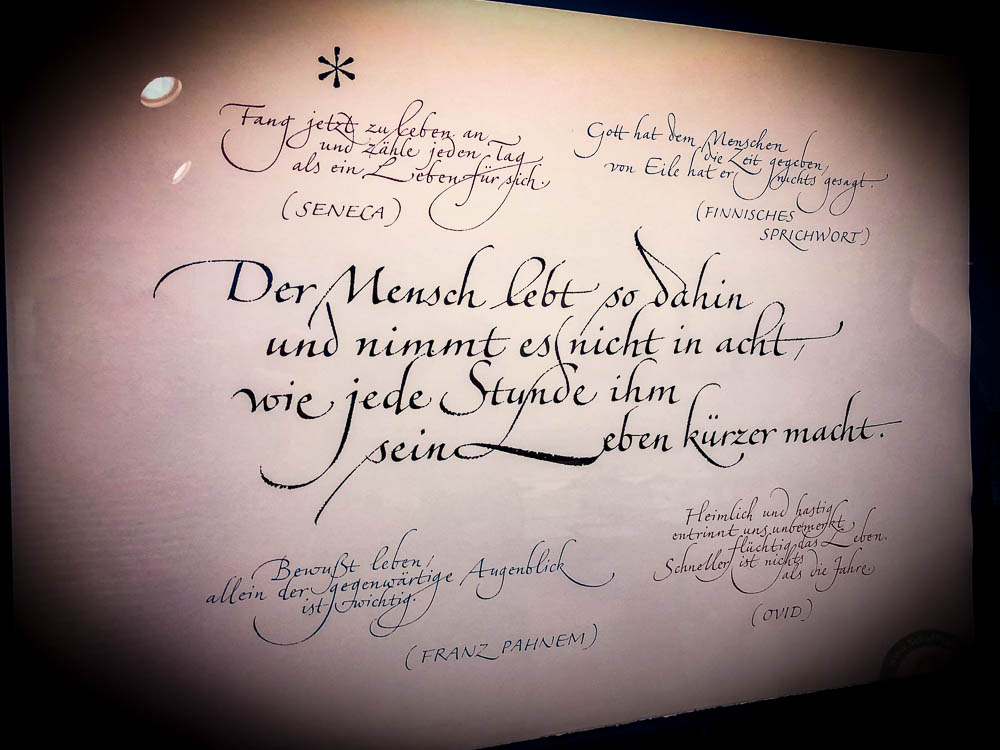 *
Fang jetzt zu leben an
und zähle jeden Tag
als ein Leben für sich.
(SENECA)
Gott hat dem Menschen
die Zeit gegeben,
von Eile hat er nichts gesagt.
(FINNISCHES
SPRICHWORT)
Der Mensch lebt so dahin
und nimmt es nicht in acht,
wie jede Stunde ihm
sein Leben kürzer macht.
Bewußt leben,
allein der gegenwärtige Augenblick
ist wichtig.
(FRANZ PAHNEM)
Heimlich und hastig
entrinnt uns unbemerkt
flüchtig das Leben.
Schneller ist nichts
als die Jahre.
(OVID)